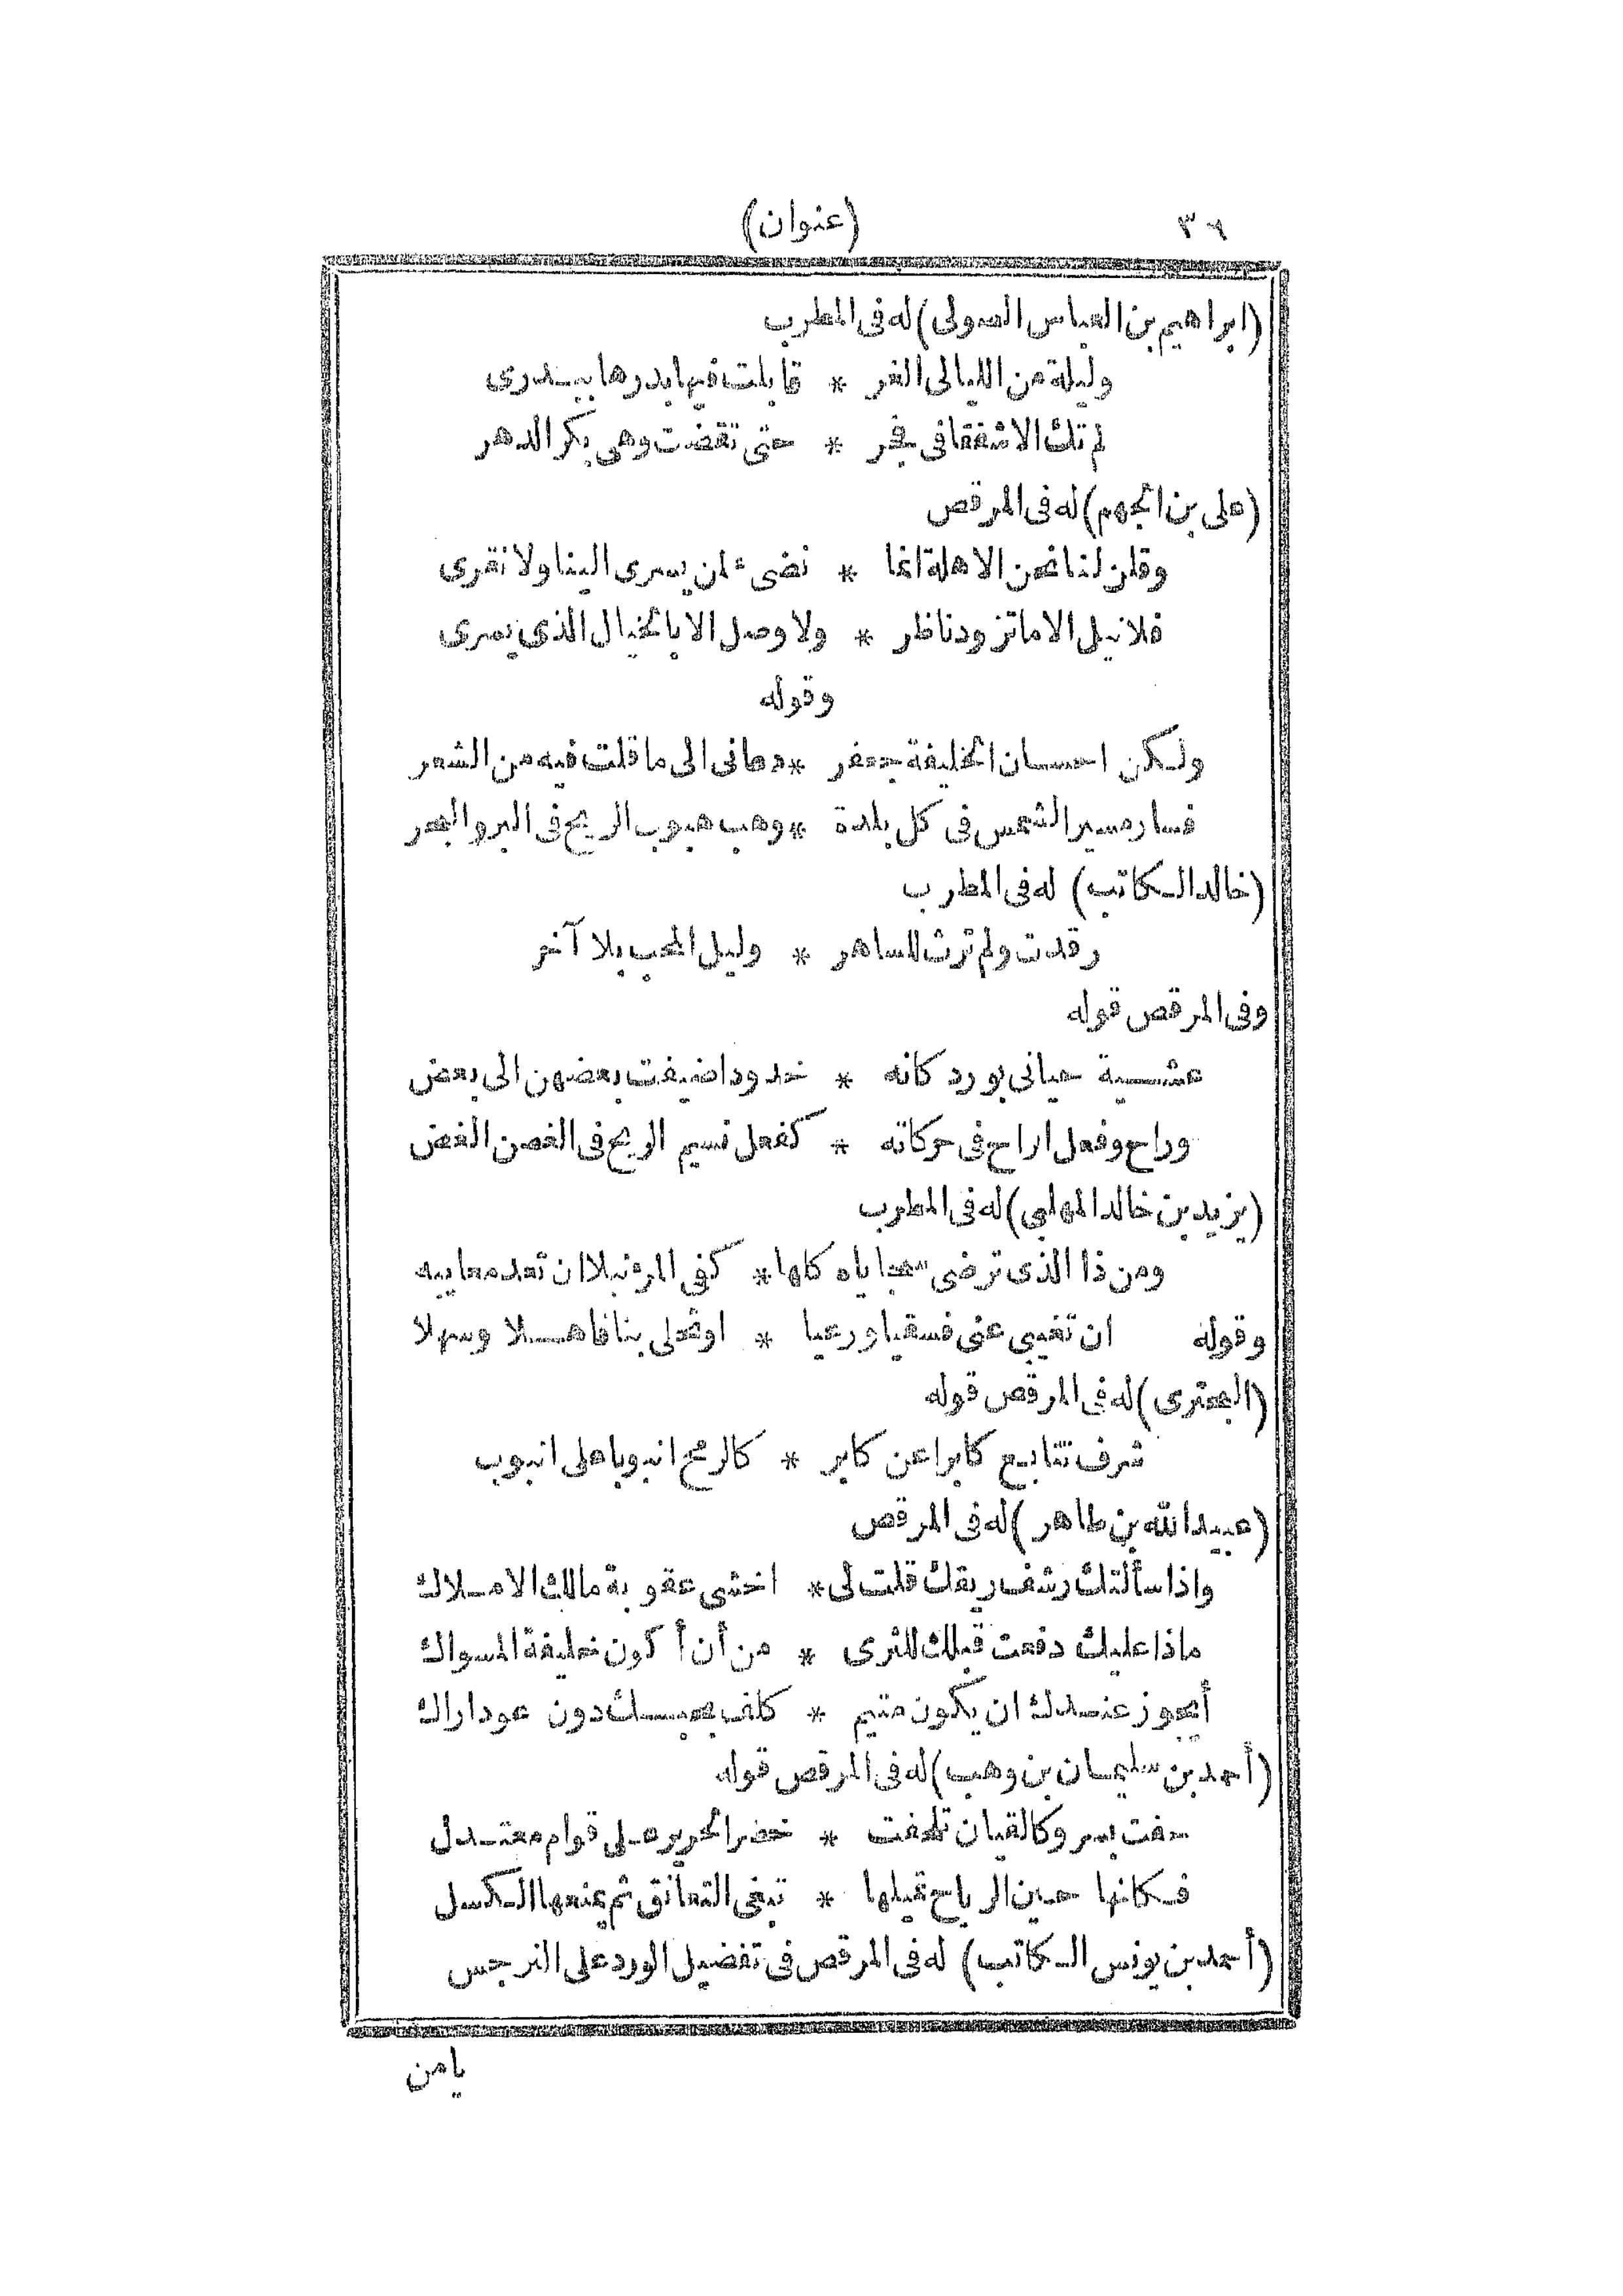 ٣٦ (عنوان)
(ابراهيم بن العباس الصولى) له فى المطرب
وليلة من الليالى الغر * قابلت فيها بدرها ببدرى
لم تك الا شفقا فى فجر * حتى تقضت وهى بكر الدهر
(على بن الجهم) له فى المرقص
وقلن لنا نحن الاهلة انما * نضىء لمن يسرى الينا ولا نقرى
فلا نيل الا ما تزود ناظر * ولا وصل الا بالخيال الذى يسرى
وقوله
ولكن احسان الخليفة جعفر * دعانى الى ما قلت فيه من الشعر
فسار مسير الشمس فى كل بلدة * وهب هبوب الريح فى البر والبحر
(خالد الكاتب) له فى المطرب
رقدت ولم ترث للساهر * وليل المحب بلا آخر
وفى المرقص قوله
عشية حيانى بورد كانه * خدود اضيفت بعضهن الى بعض
وراح وفعل الراح فى حركاته * كفعل نسيم الريح فى الغصن الغض
(يزيد بن خالد المهلبى) له فى المطرب
ومن ذا الذى ترضى سجاياه كلها * كفى المرء نبلا ان تعد معايبه
وقوله ان تغيبى عنى فسقيا ورعيا * او تحلى بنا فاهلا وسهلا
(البحترى) له فى المرقص قوله
شرف تتابع كابرا عن كابر * كالرمح انبوبا على انبوب
(عبيد الله بن طاهر) له فى المرقص
واذا سألتك رشف ريقك قلت لى * اخشى عقوبة مالك الاملاك
ماذا عليك دفعت قبلك للثرى * من أن أكون خليفة المسواك
أيجوز عندك ان يكون متيم * كلف بحبك دون عود اراك
(أحمد بن سليمان بن وهب) له فى المرقص قوله
حفت بسرو كالقيان تلحفت * خضر الحرير على قوام معتدل
فكانها حين الرياح تميلها * تبغى التعانق ثم يمنعها الكسل
(أحمد بن يونس الكاتب) له فى المرقص فى تفضيل الورد على النرجس
يا من